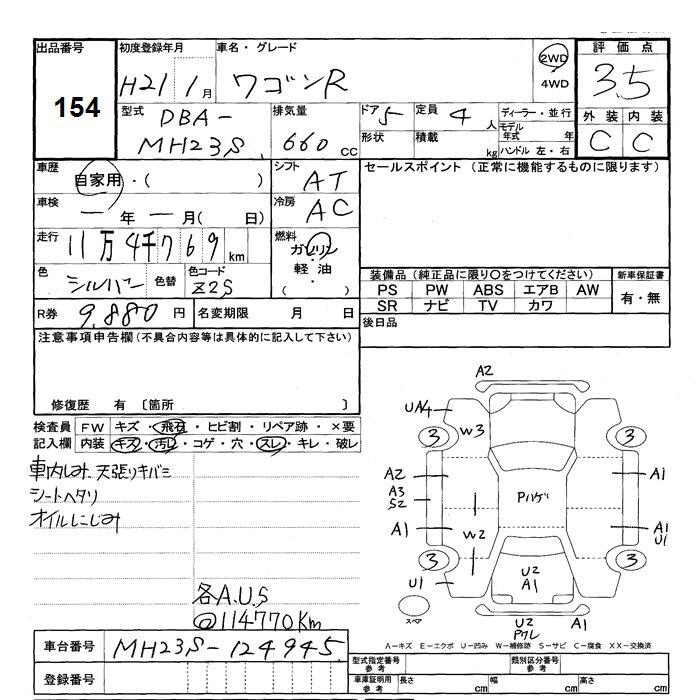 出品番号
154
初度登録年月
H21 1月
車名・グレード
ワゴンR
2WD
4WD
評価点
3.5
型式
DBA-
MH23S
排気量
660 cc
ドア 5
定員 4 人
ディーラー・並行
モデル年式 年
形状
積載 kg
ハンドル 左・右
外装 内装
C C
車歴
自家用・( )
シフト
AT
セールスポイント (正常に機能するものに限ります)
車検
ー年ー月( 日)
冷房
AC
走行
11万4千769km
燃料
ガソリン
軽油
( )
色
シルバー
色替
色コード
Z2S
装備品(純正品に限り○をつけてください)
新車保証書
PS PW ABS エアB AW
有・無
SR ナビ TV カワ
R券
9,880円
名変期限 月 日
後日品
注意事項申告欄(不具合内容等は具体的に記入して下さい)
修復歴 有 〔箇所 〕
検査員 FW キズ・飛石・ヒビ割・リペア跡・×要
記入欄 内装 キズ・汚レ・コゲ・穴・スレ・キレ・破レ
車内しみ 天張りキバミ
シートヘタリ
オイルにじみ
各A.U.S
@114770Km
A2
UA4
W3
3
3
A2
A3
S2
A1
Pハゲ
A1
A1
U1
W2
3
3
U1
U2
A1
スペア
U2
Pワレ
A1
A-キズ E-エクボ U-凹み W-補修跡 S-サビ C-腐食 XX-交換済
車台番号
MH23S-124945
登録番号
型式指定番号 参考
類別区分番号 参考
車庫証明用 参考
長さ cm
幅 cm
高さ cm